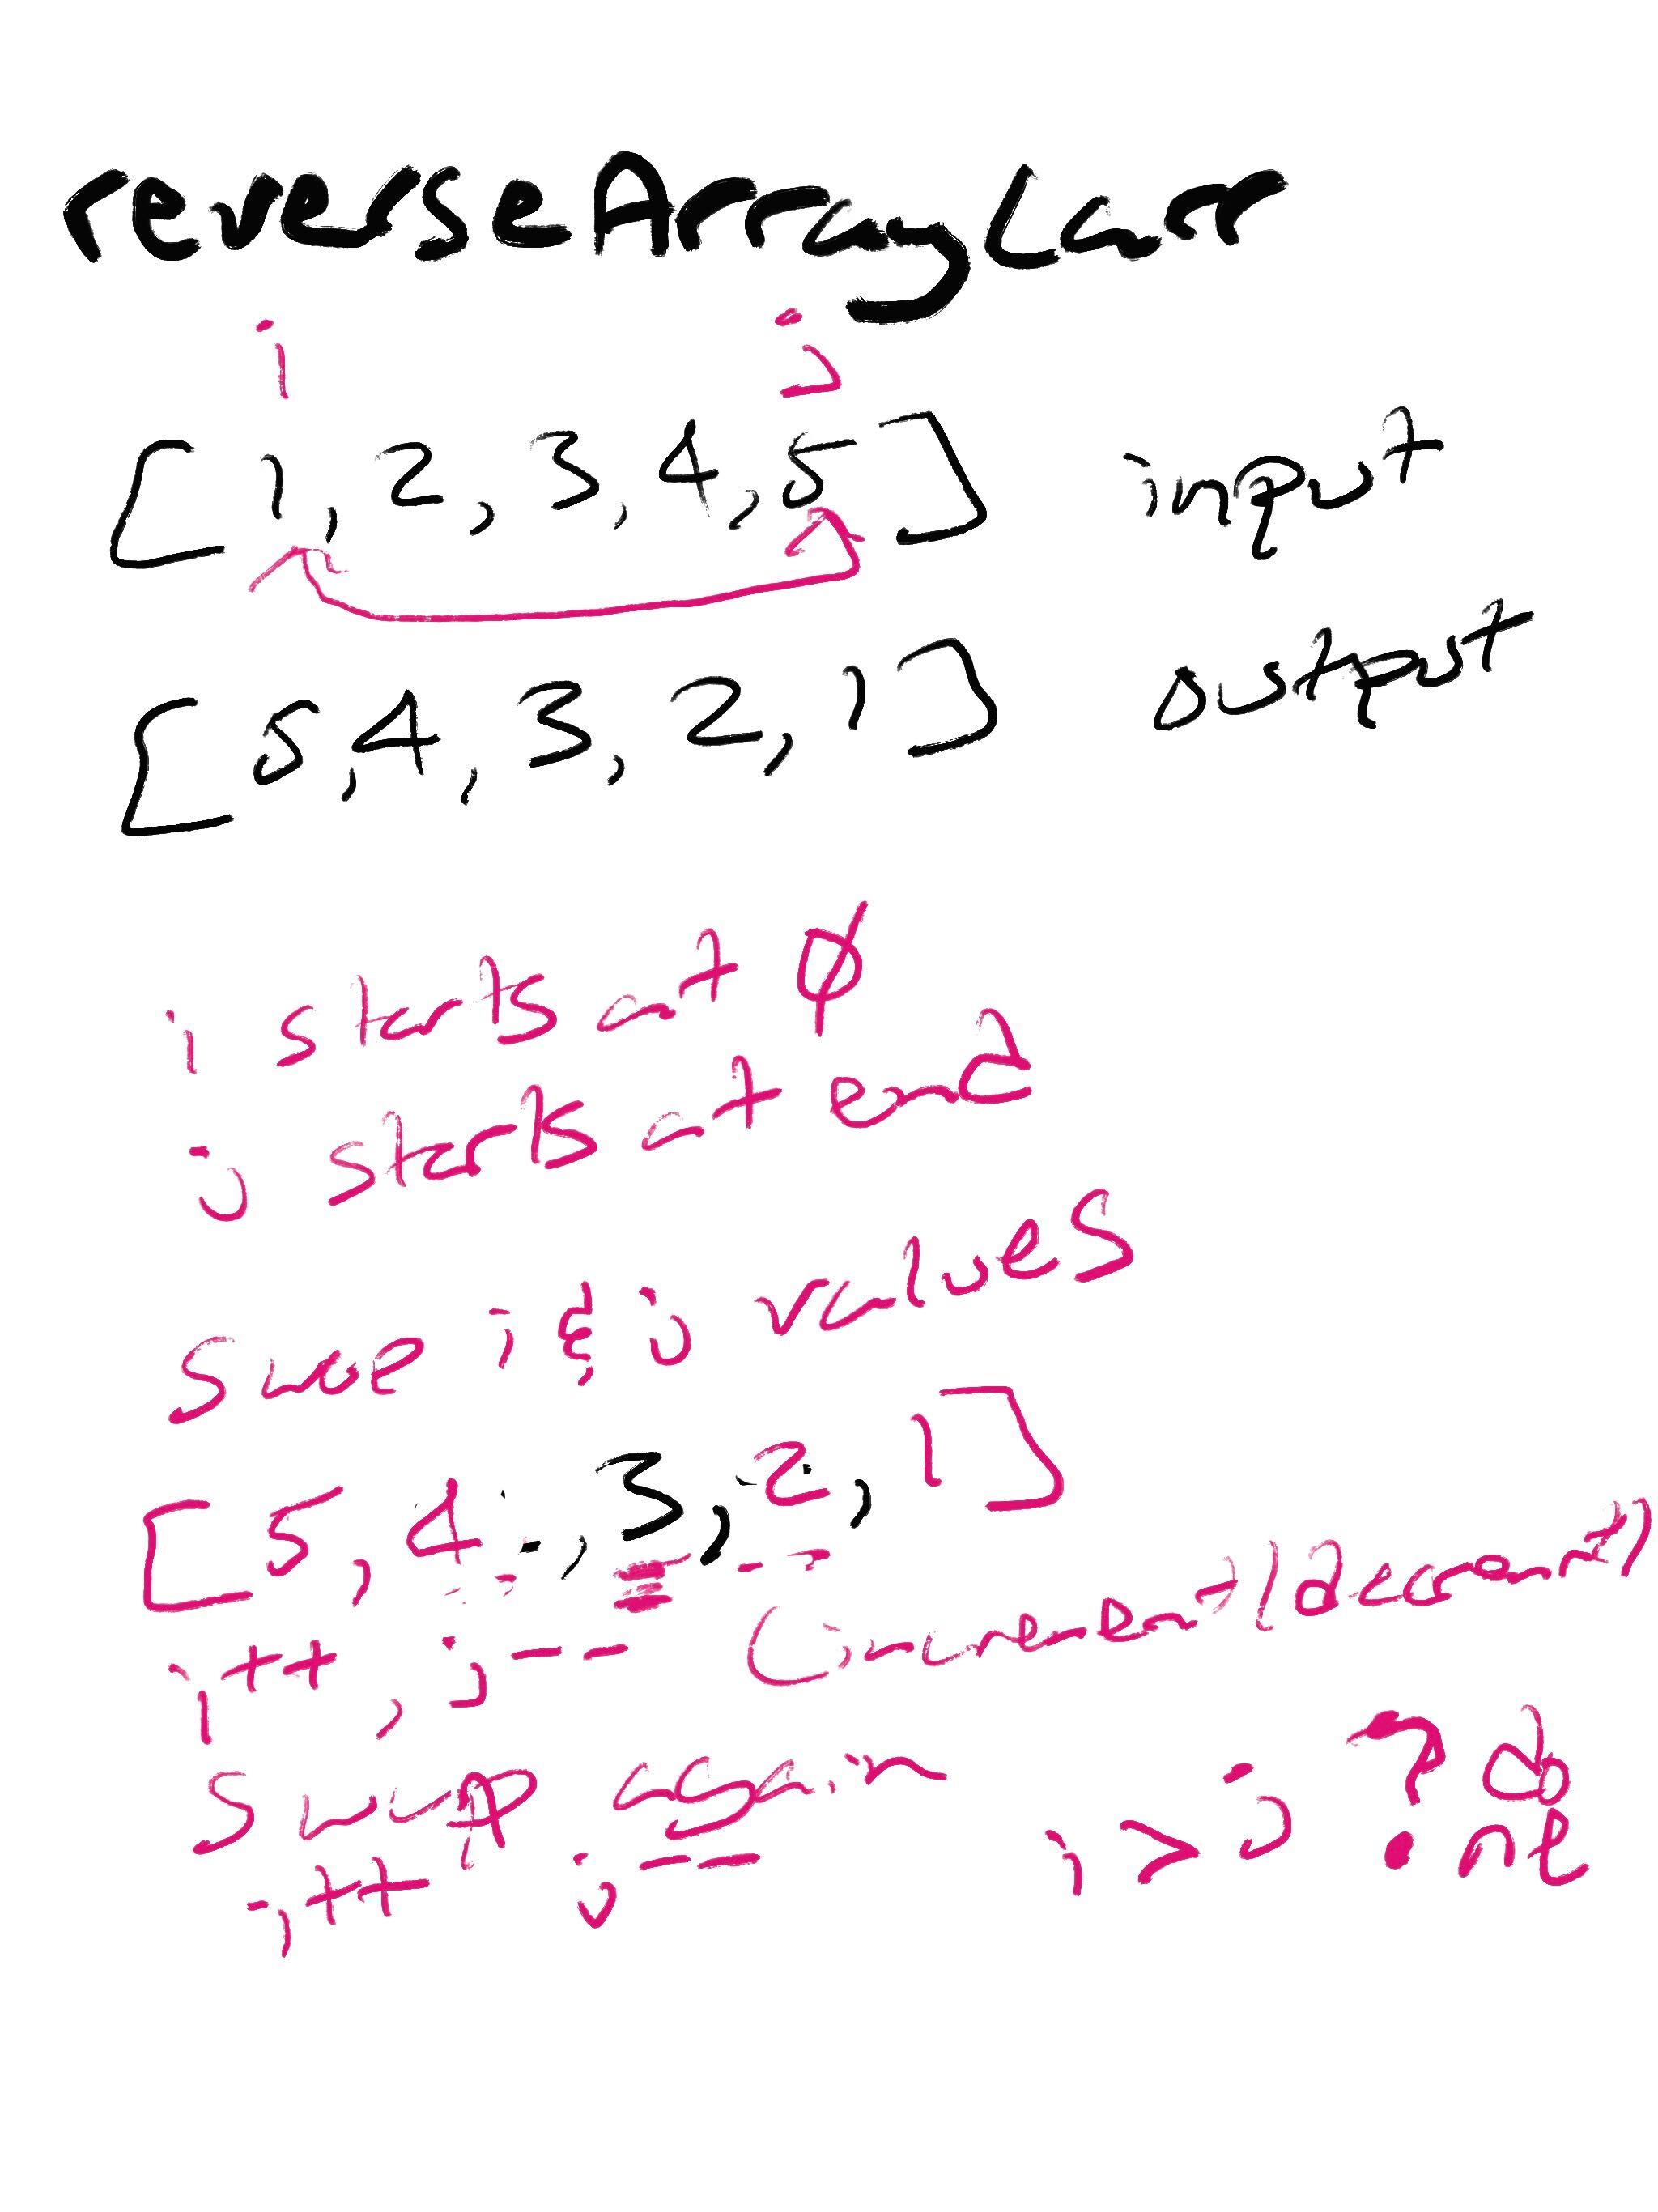 reverseArray(arr
i j
[1, 2, 3, 4, 5] input
[5, 4, 3, 2, 1] output
i starts at 0
j starts at end
i & j values
[5, 4, 3, 2, 1]
i++, j-- (increment/decrement)
Swap again
i++ j--
i > j ? do
ne